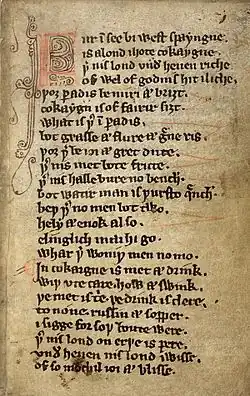 Fur ī see bi west spayngne.
is a lond ihote cokaygne.
þ͛ nis lond vnd͛ heuen riche.
of wel of godnis hit iliche.
þoȝ ꝑadis be miri ⁊ briȝt.
cokaygn is of fairir siȝt.
what is þ͛ ī ꝑadis.
bot grasse ⁊ flure ⁊ g͛ne ris.
þoȝ þ͛ be ioi ⁊ gret dute.
þ͛ nis met bote frute.
þ͛ nis halle bure no bench.
bot watir man is þursto q͛nch.
beþ þ͛ no men bot two.
hely ⁊ enok also.
elinglich mai hi go
whar þ͛ woniþ men no mo.
In cokaigne is met ⁊ drink.
wiþ vte care how ⁊ swink.
þe met is trie þe drink is clere.
to none russin ⁊ sopper.
i sigge for soþ boute were.
þ͛ nis lond on erþe is pere.
vnd͛ heuen nis lond iwisse.
of so mochil ioi ⁊ blisse.